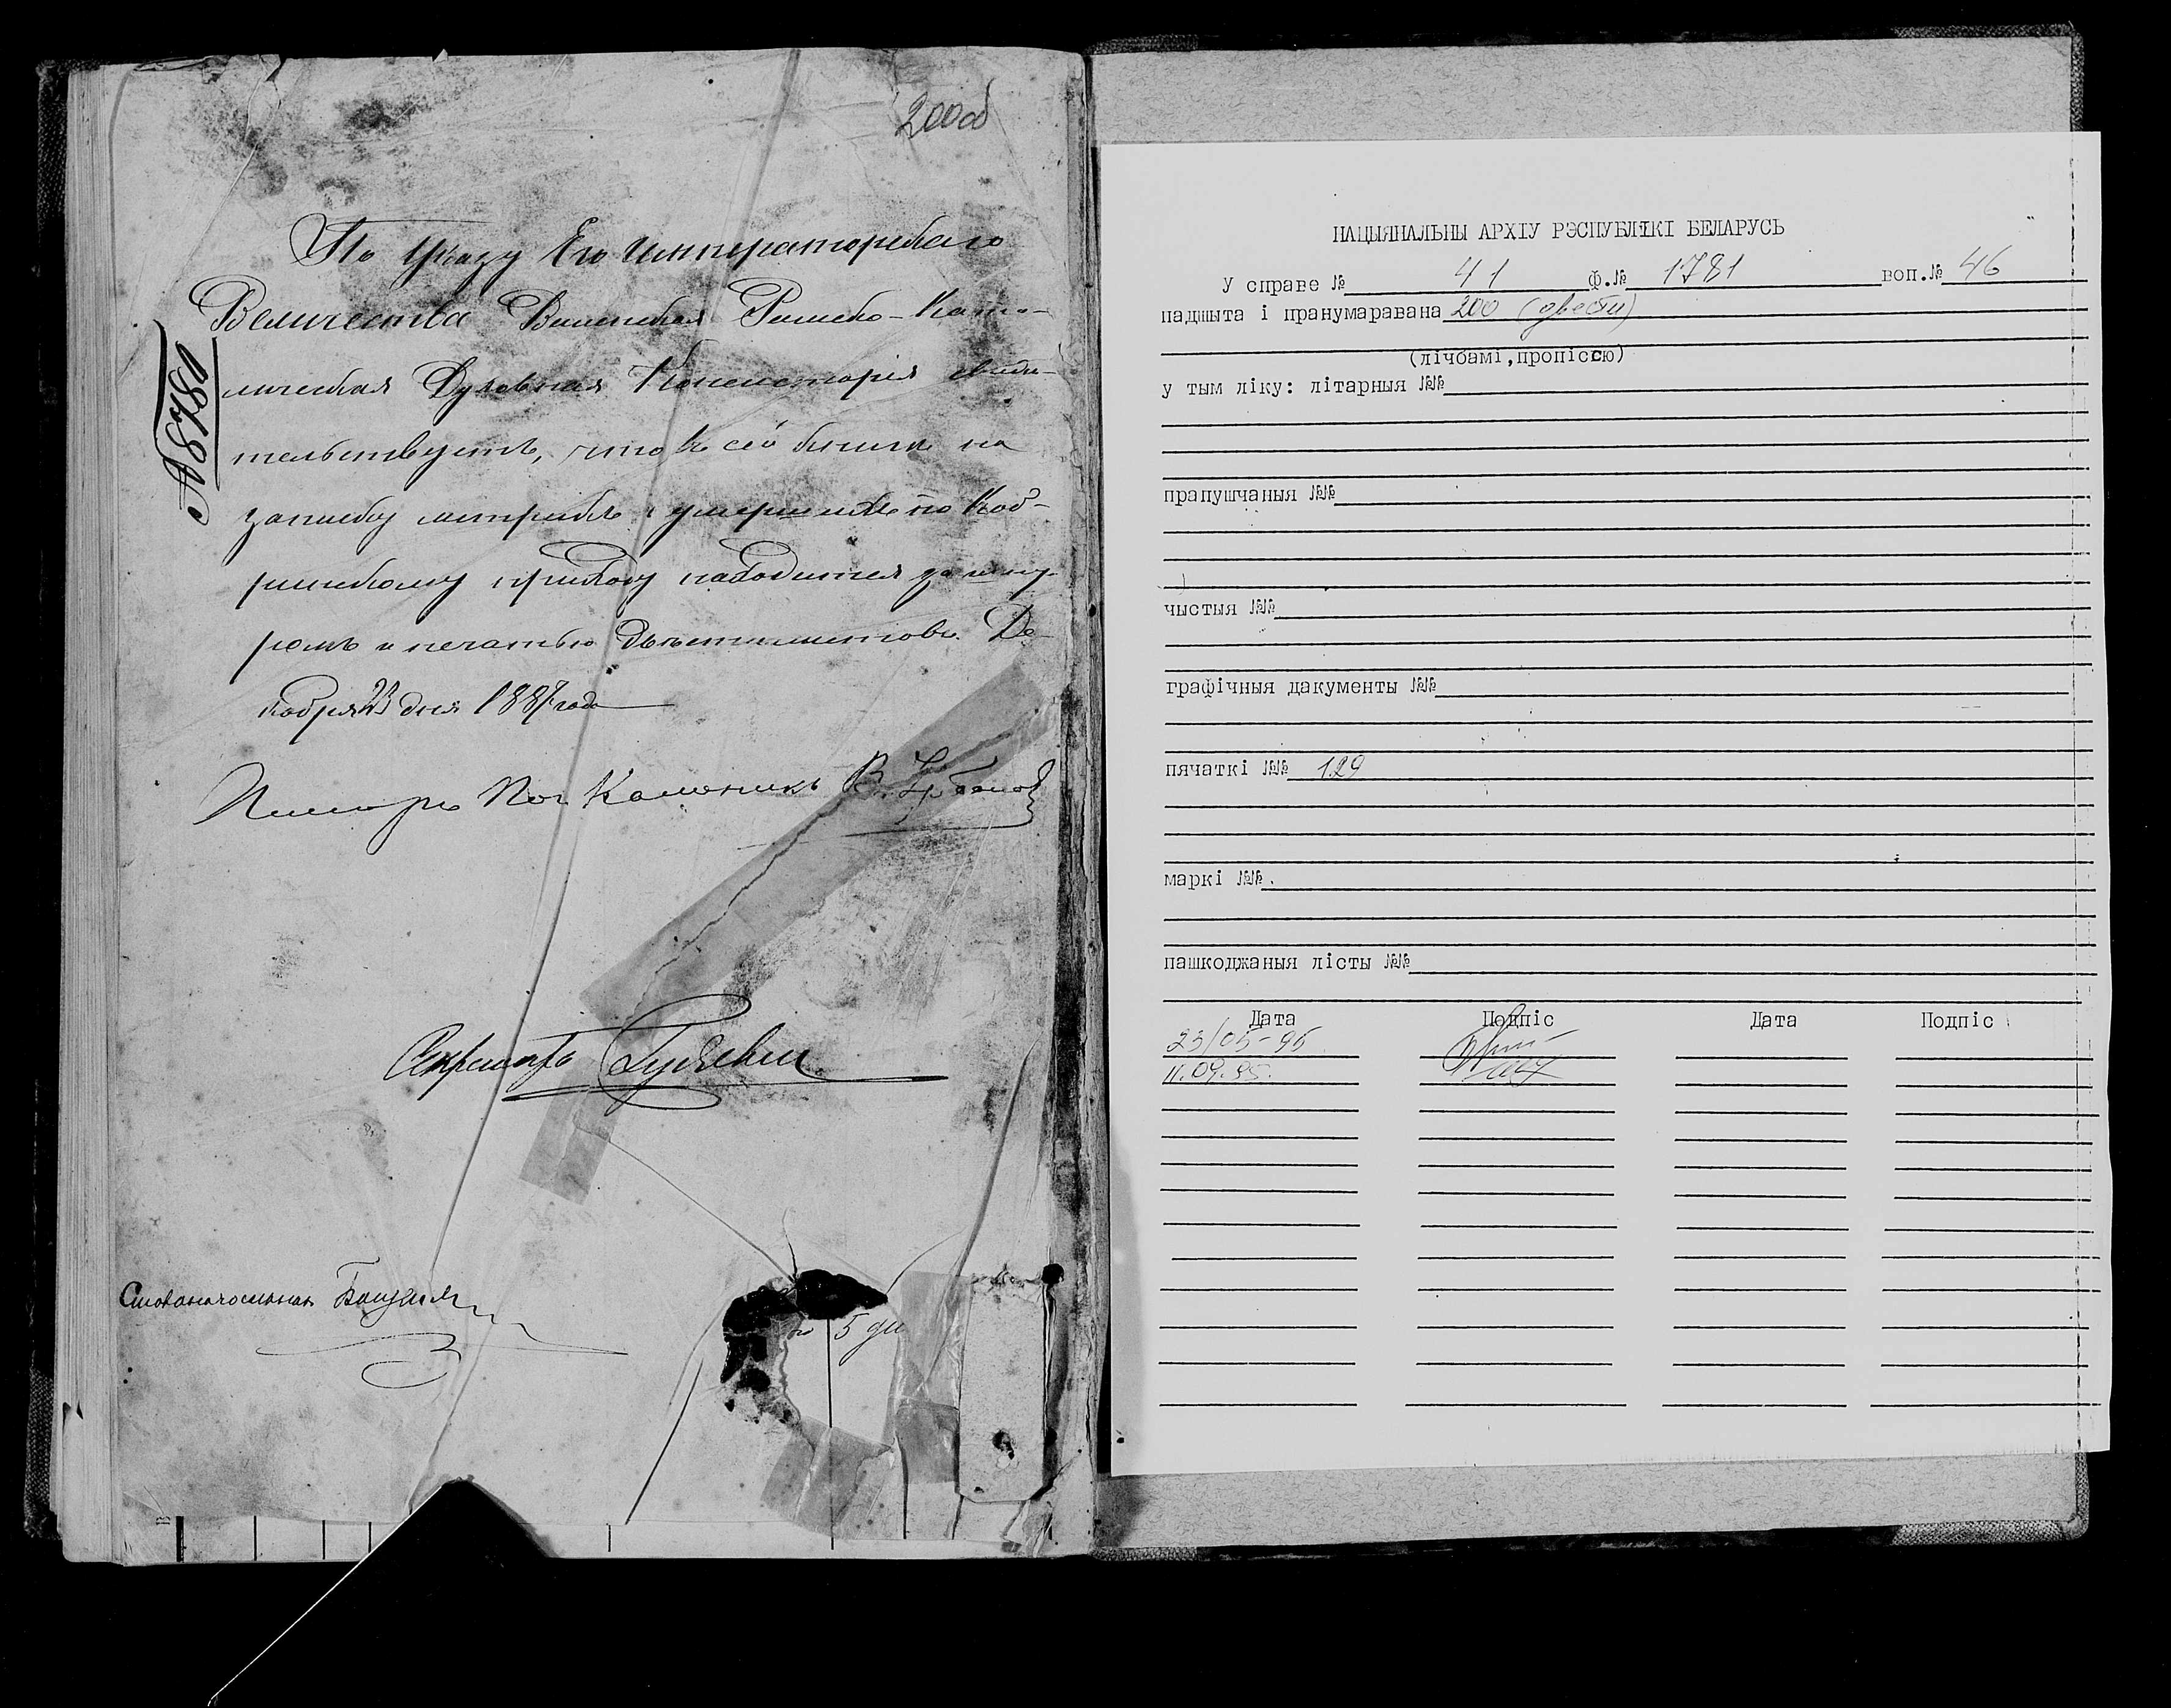 200 об
№ 8780
По Указу Его Императорскаго
Величества Виленская Римско-Като-
лическая Духовная Консисторія свидѣ-
тельствуетъ, что въ сей книгѣ на
записку метрикъ о умершихъ по Коб-
ринскому приходу находится за шну-
ромъ и печатью двѣсти листовъ. Де-
кабря 23 дня 1887 года
Каноникъ
Секретарь
Столоначальникъ
5 ди
НАЦЫЯНАЛЬНЫ АРХІУ РЭСПУБЛІКІ БЕЛАРУСЬ
У справе № 41 Ф.№ 1781 воп.№ 46
падшыта і пранумаравана 200 (двести)
(лічбамі,пропіссю)
у тым ліку: літарныя №№
прапушчаныя №№
чыстыя №№
графічныя дакументы №№
пячаткі №№ 129
маркі №№.
пашкоджаныя лісты №№
Дата Подпіс Дата Подпіс
23/05-96
11.09.95.